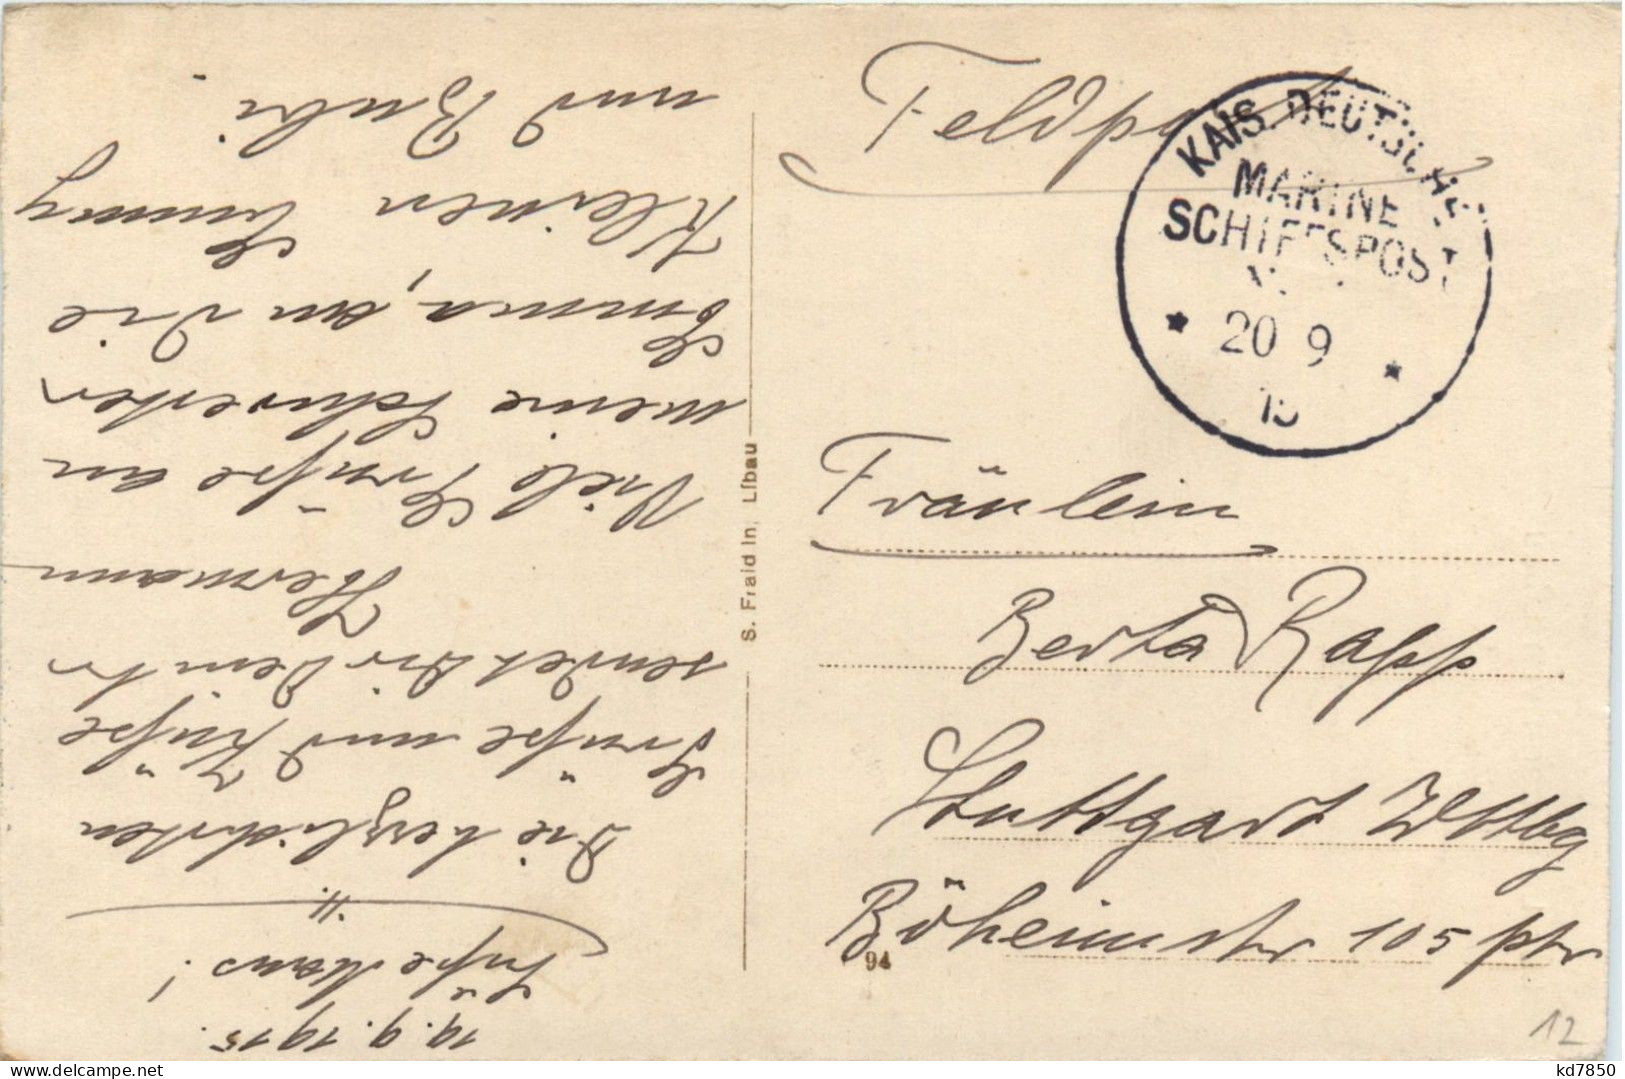 19.9.1915.
Süße Maus!
Die herzlichsten
Grüße und Küße
sendet Dir Dein tr
Hermann
Viele Grüße an
meine Schwester
Emma, an die
Kleinen Emmy
und Bubi.
S. Fraid in, Libau
Feldpost
KAIS. DEUTSCHE
MARINE
SCHIFFSPOST
20 9
15
Fräulein
Berta Rapp
Stuttgart Wttbg
Böheimstr 105 ptr
94
12
kd7850